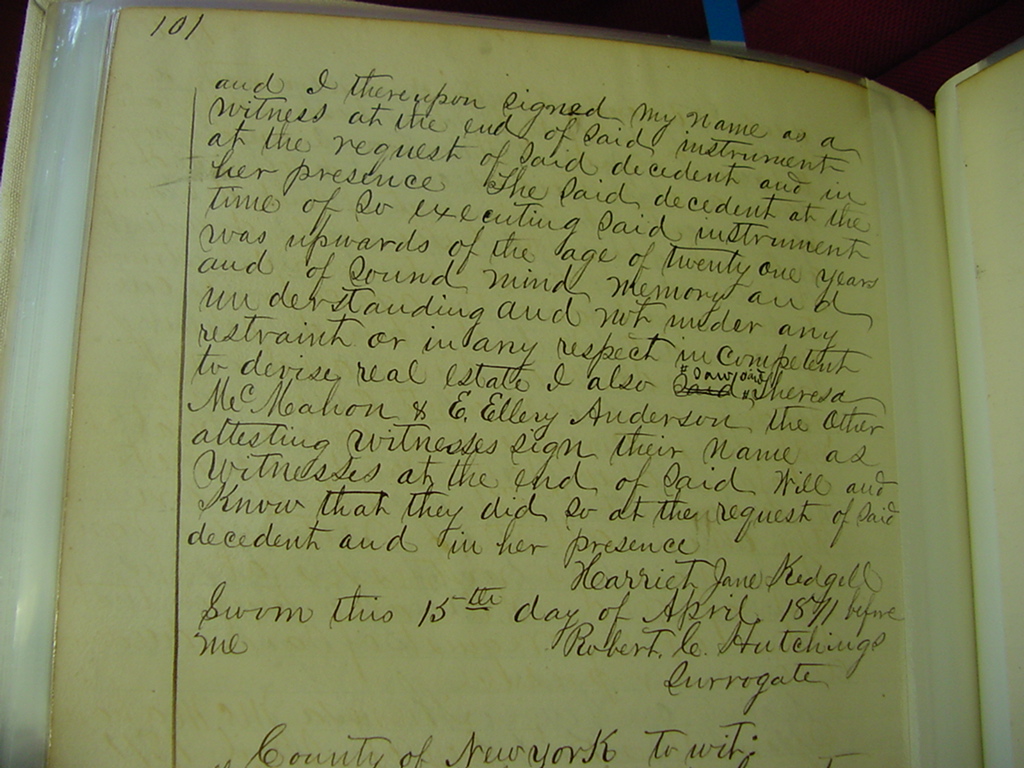 101
and I thereupon signed my name as a
witness at the end of said instrument
at the request of said decedent and in
her presence The said decedent at the
time of so executing said instrument
was upwards of the age of twenty one years
and of sound mind memory and
understanding and not under any
restraint or in any respect incompetent
to devise real estate I also said Theresa
McMahon & E. Ellery Anderson the other
attesting witnesses sign their name as
witnesses at the end of said Will and
Know that they did so at the request of said
decedent and in her presence
Harriet Jane Kedgell
Sworn this 15th day of April 1871 before
me Robert C. Hutchings
Surrogate
County of New York to wit: